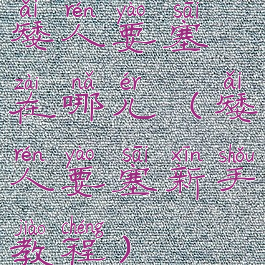 ǎi rén yào sāi
矮人要塞
zài nǎ ér
在哪儿（矮
ǎi
rén yào sāi xīn shǒu
人要塞新手
jiào chéng
教程）